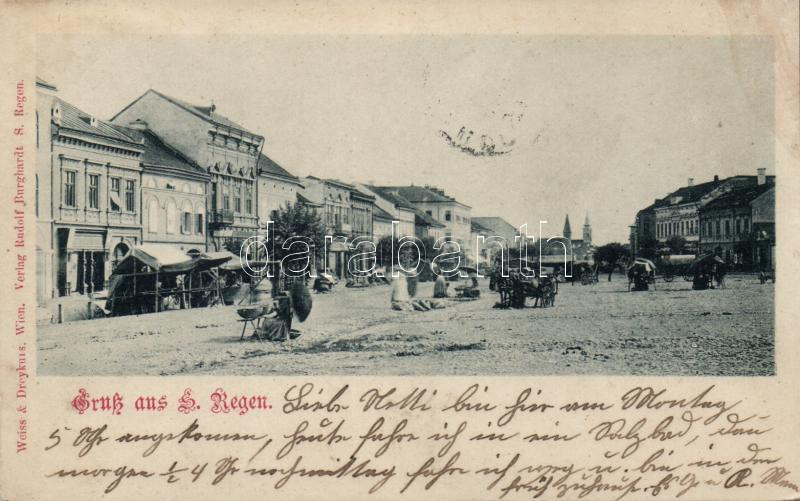 Weiss & Dreykurs, Wien. Verlag Rudolf Burghardt S. Regen.
darabanth
Gruß aus S. Regen. Liebe Netti bin hier am Montag
5 Uhr angekomen, heute fahre ich in ein Salzbad, dan
morgen ½ 4 Uhr nochmittag fahre ich weg u. bin in der
früh zuhause. Es G. u K.